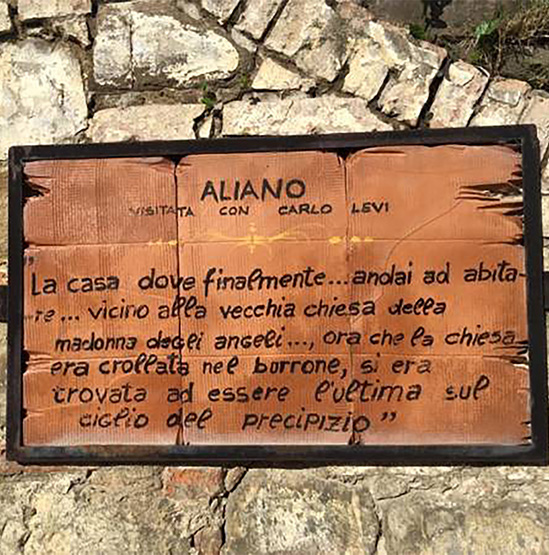 ALIANO
VISITATA CON CARLO LEVI
"La casa dove finalmente... andai ad abita-
re... vicino alla vecchia chiesa della
madonna degli angeli..., ora che la chiesa
era crollata nel burrone, si era
trovata ad essere l'ultima sul
ciglio del precipizio"